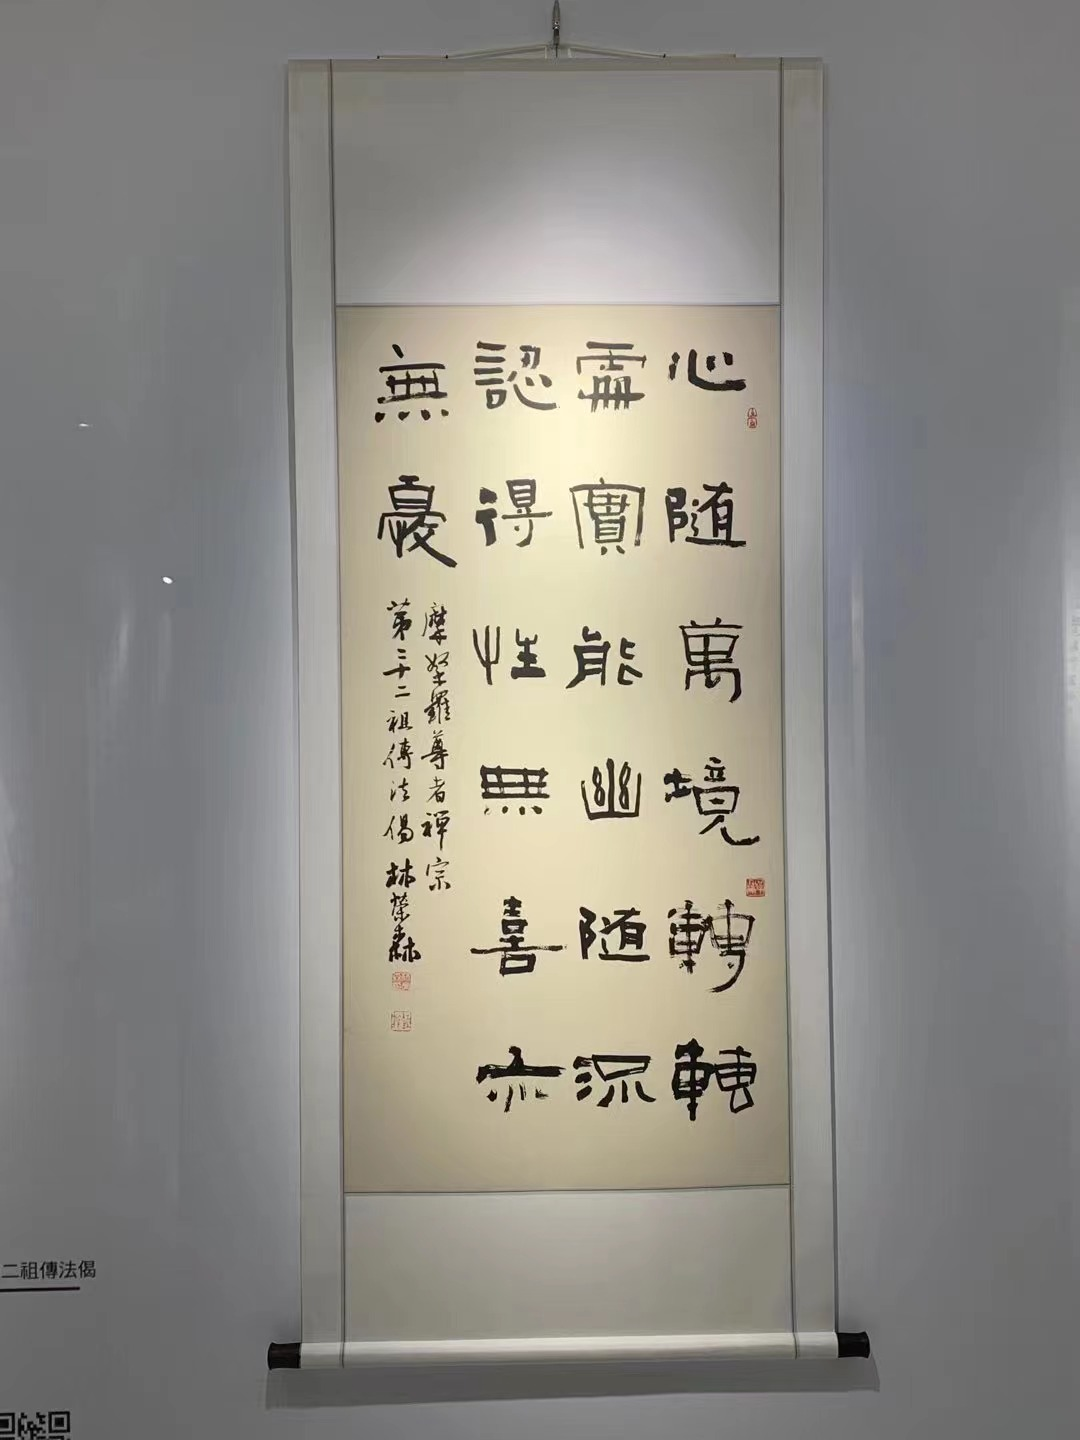 心随萬境轉轉
處實能幽随流
認得性無喜亦
無憂
摩拏羅尊者禪宗
第二十二祖傳法偈 林榮森
二祖傳法偈